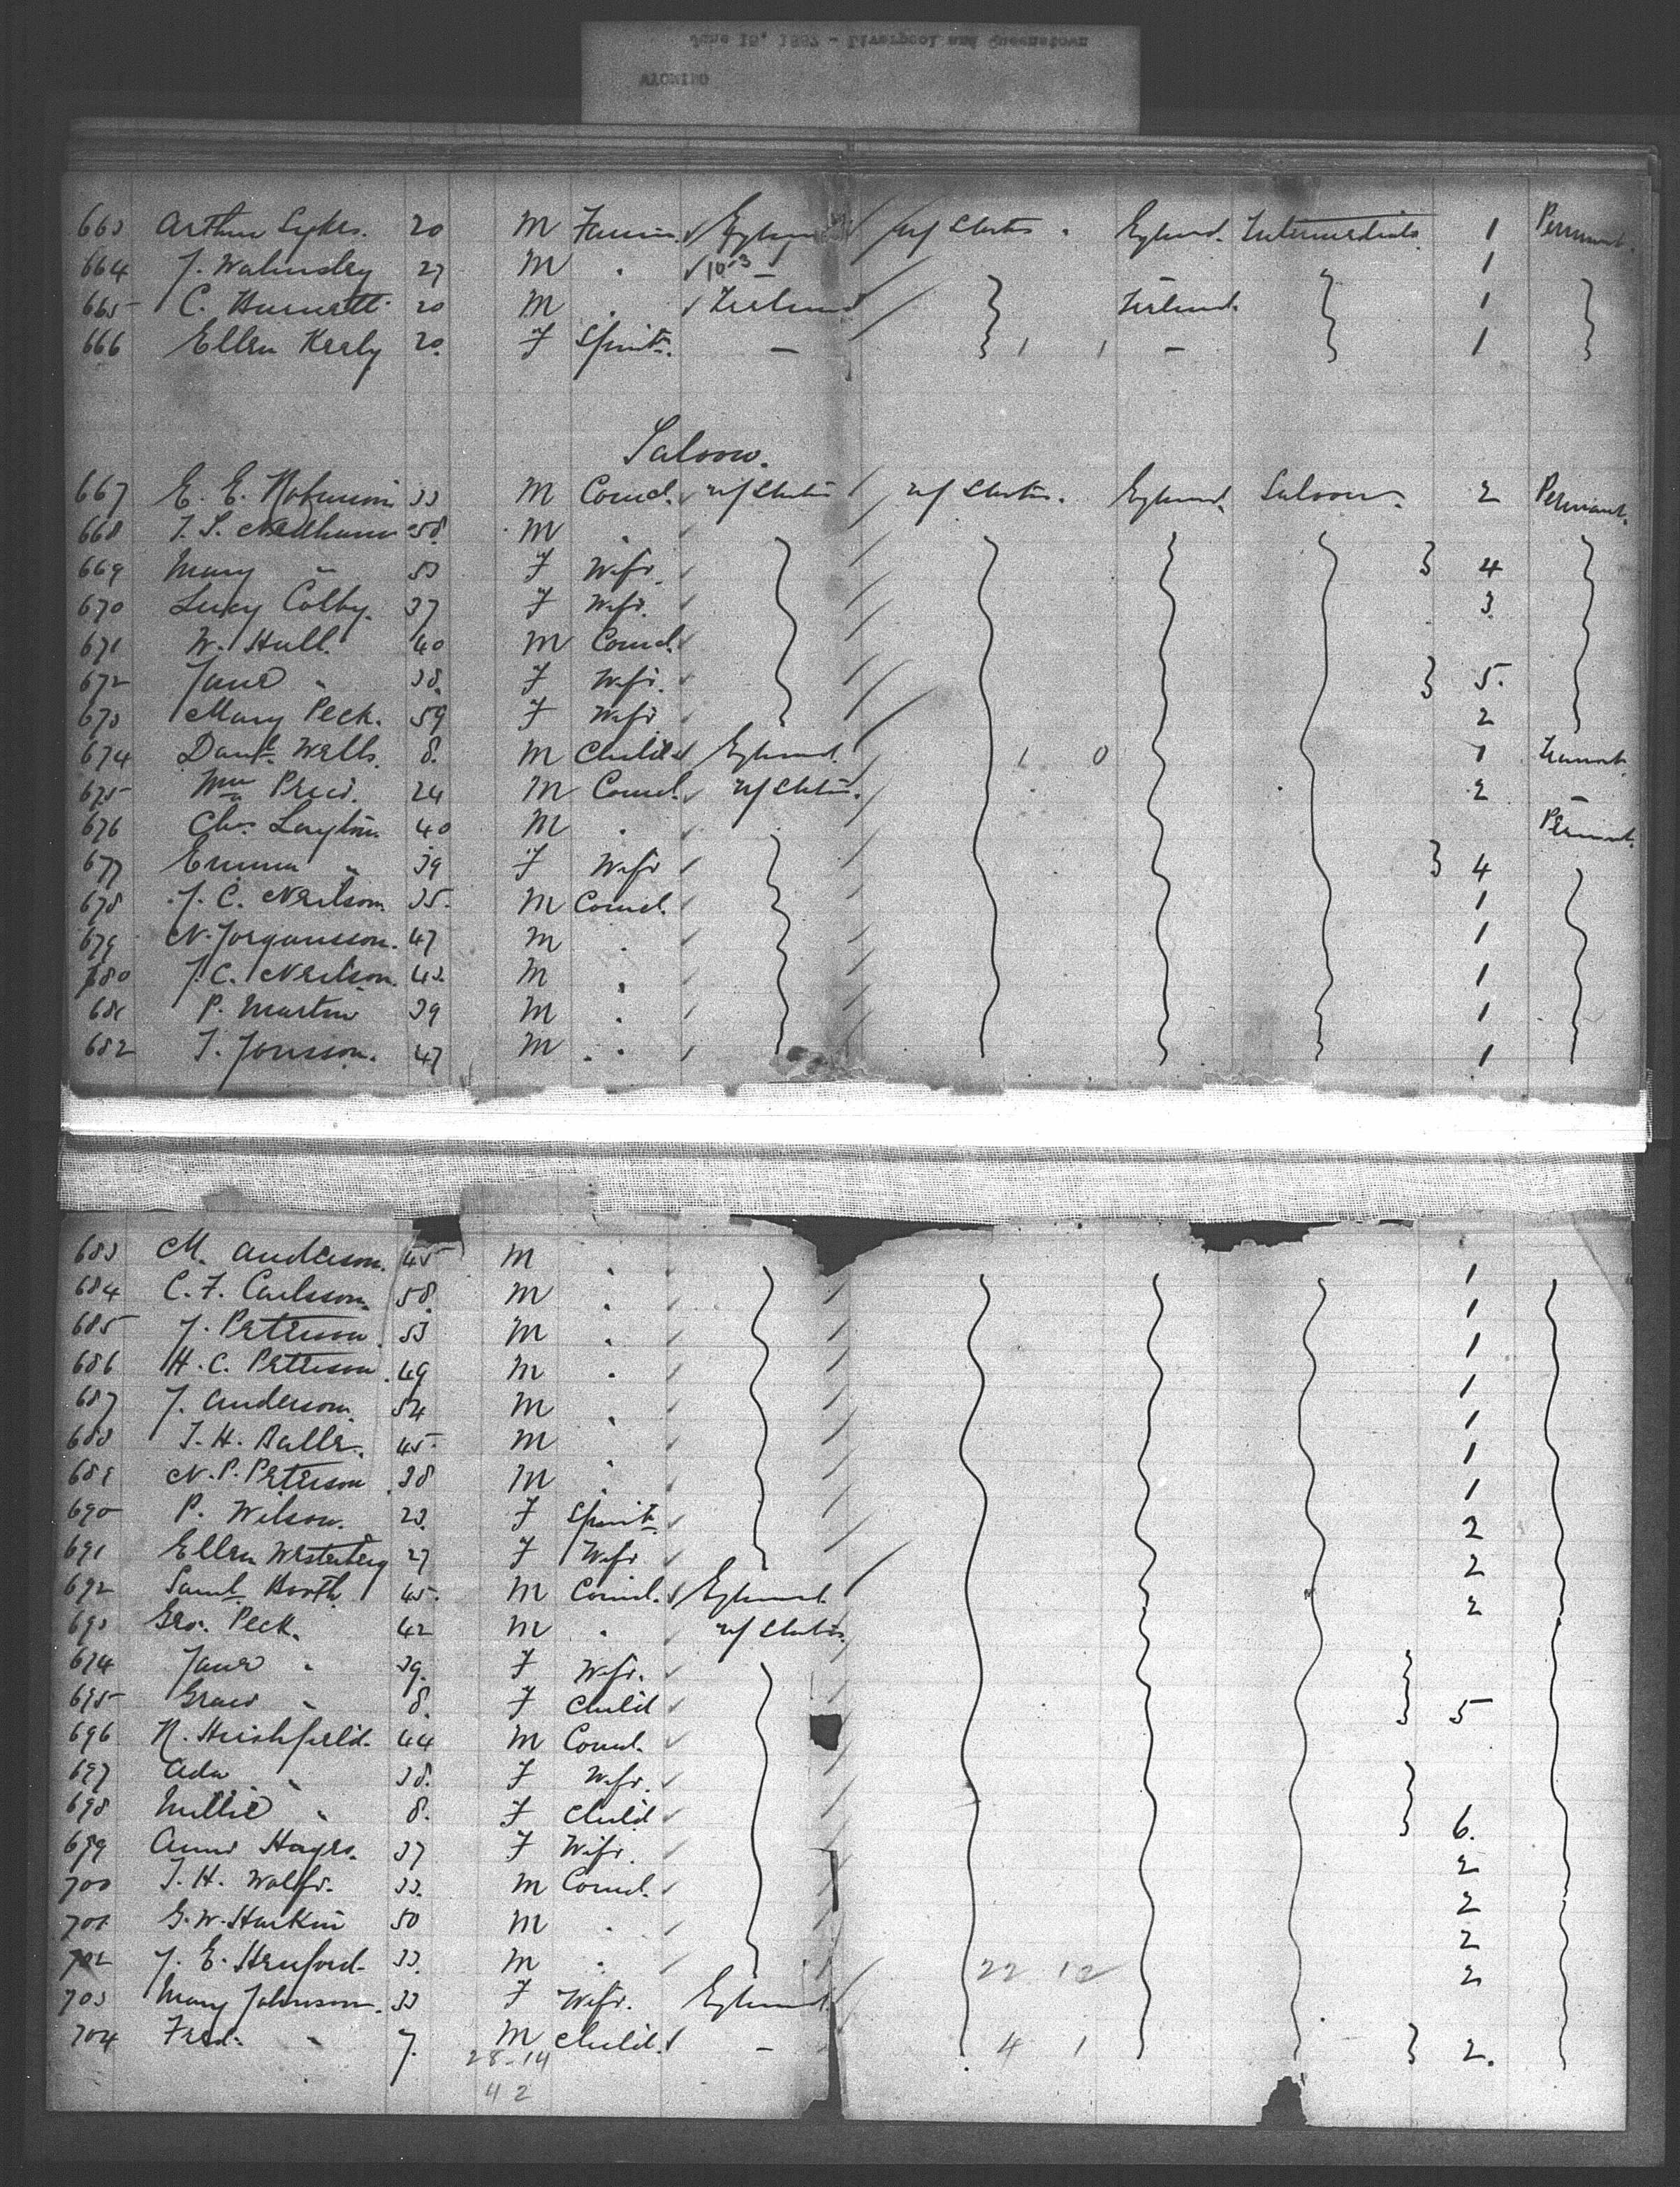 June 15, 1887 - Liverpool and Queenstown
WYOMING
663 Arthur Sykes. 20 M Farmer England U/States. England. Intermediate 1 Permnant.
664 J. Walmsley 27 M 10-3 — — 1
665 C. Burnett 20 M Ireland Ireland. 1
666 Ellen Kealy 20. F Spinstr. — 1 1 — 1
Saloon.
667 E. E. Robinson 33 M Comcl. U/States U/States. England. Saloon. 2 Permnant.
668 T. S. Needham 58. M
669 Mary " 53 F Wife. 4
670 Lucy Colby. 37 F Wife. 3.
671 W. Hull. 40 M Comcl.
672 Jane " 38. F Wife. 5.
673 Mary Peck. 59 F Wife 2
674 Danl. Wells. 8. M Child England. 1 0 1 Transnt.
675 Wm Price. 24 M Comcl. U/States. 2 —
676 Chs Layton 40 M Permnt.
677 Emma " 39 F Wife 4
678 J. C. Neilson 35. M Comcl. 1
679 N. Jorgansson. 47 M 1
680 J. C. Neilson. 43. M 1
681 P. Martin 39 M 1
682 J. Jonsson. 47 M 1
683 M. Anderson. 45 M 1
684 C. F. Carlsson. 58. M 1
685 J. Peterson. 53 M 1
686 H. C. Peterson. 49 M 1
687 J. Anderson. 54 M 1
688 T. H. 45. M 1
689 N. P. Peterson. 38 M 1
690 P. Wilson. 23. F Spinstr 2
691 Ellen Westerberg 27 F Wife 2
692 Saml. Booth 45. M Comcl. England. 2
693 Geo. Peck. 42 M U/States.
694 Jane " 39. F Wife.
695 Grace " 8. F Child 5
696 N. Hirshfield. 44 M Comcl.
697 Ada " 38. F Wife.
698 Millie " 8. F Child 6.
699 Anna Hayes. 37 F Wife. 2
700 T. H. Wolfe. 33. M Comcl. 2
701 G. W. Harkin 50 M 2
702 J. E. Hereford. 33. M 22 12 2
703 Mary Johnson. 33 F Wife. England.
704 Fred. " 7. M Child. — 4 1 2.
28-14
42